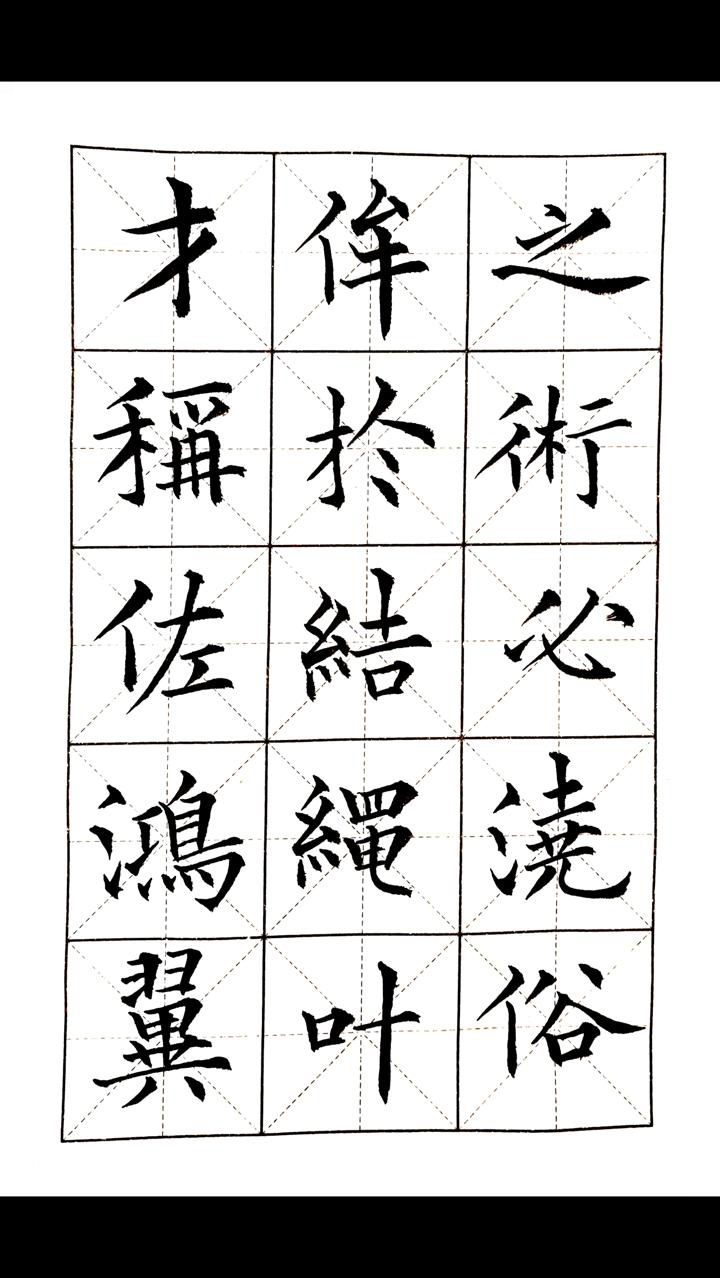 之術必澆俗
侔於結繩叶
才稱佐鴻翼